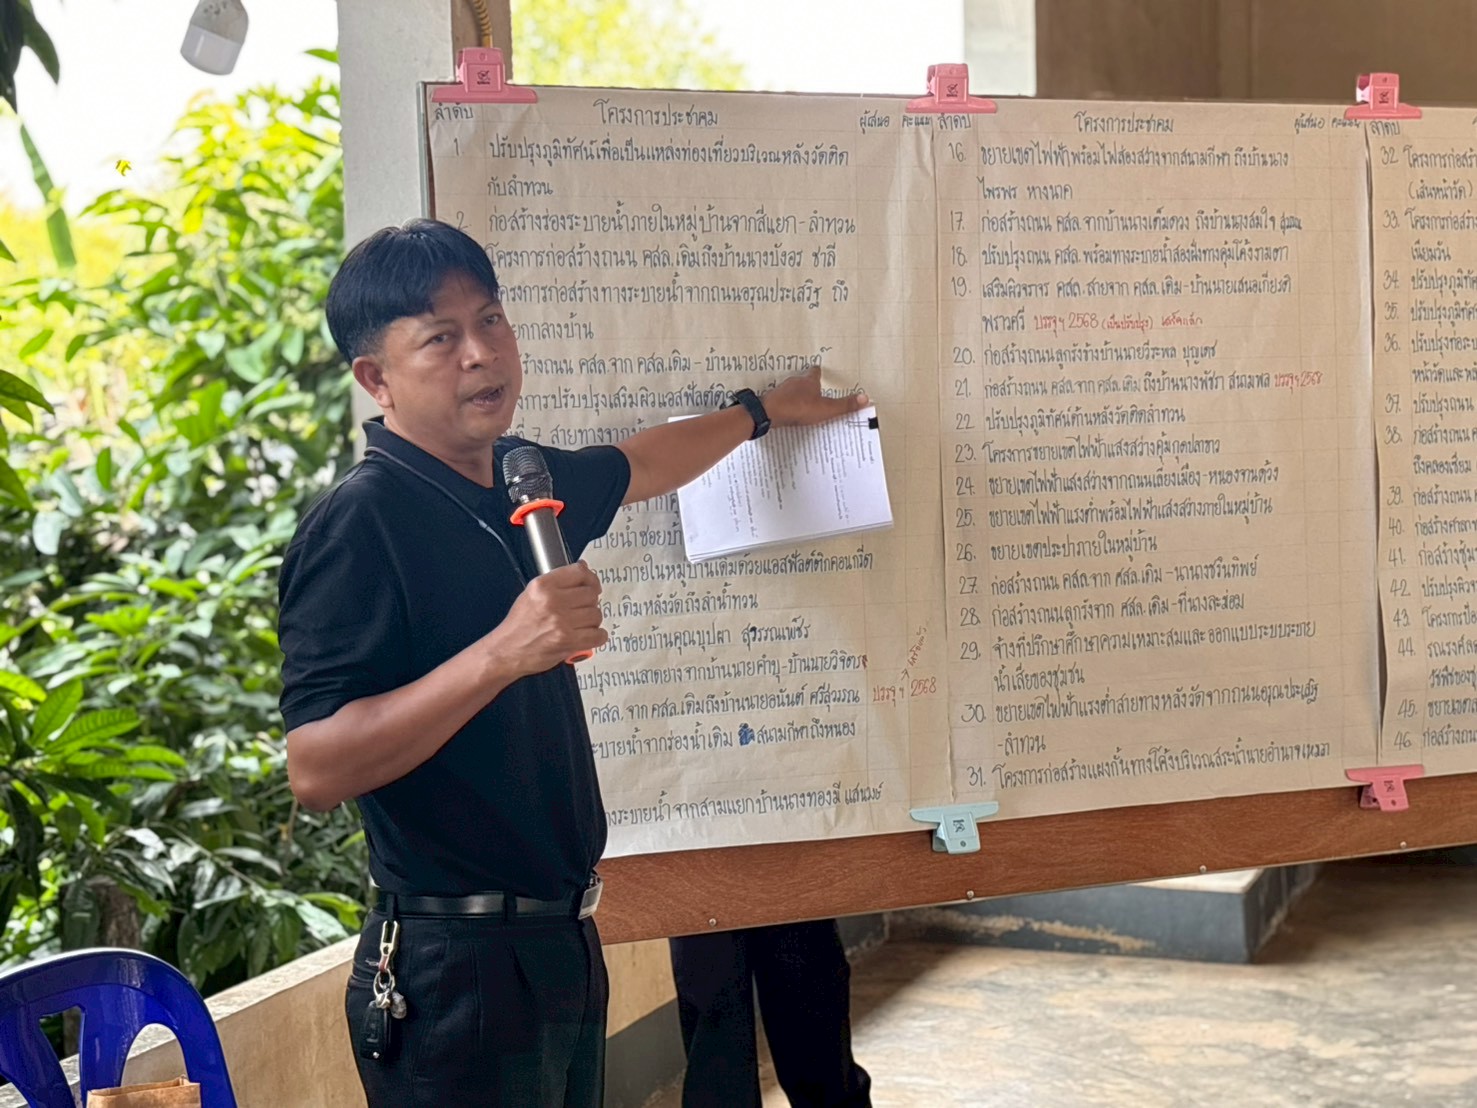 ลำดับ โครงการประชาคม ผู้เสนอ คะแนน
1. ปรับปรุงภูมิทัศน์เพื่อเป็นแหล่งท่องเที่ยวบริเวณหลังวัดติด
กับลำทวน
2. ก่อสร้างร่องระบายน้ำภายในหมู่บ้านจากสี่แยก-ลำทวน
โครงการก่อสร้างถนน คสล.เดิมถึงบ้านนางบังอร ชาลี
โครงการก่อสร้างทางระบายน้ำจากถนนอรุณประเสริฐ ถึง
ยกกลางบ้าน
ร้างถนน คสล.จาก คสล.เดิม-บ้านนายสงกรานต์
การปรับปรุงเสริมผิวแอสฟัลต์ติก
ที่ 7 สายทางจาก
ยน้ำซอยบ้
นนภายในหมู่บ้านเดิมด้วยแอสฟัลต์ติกคอนกรีต
ล.เดิมหลังวัดถึงลำน้ำทวน
น้ำซอยบ้านคุณบุปผา สุวรรณเพ็ชร
บปรุงถนนลาดยางจากบ้านนายคำบุ-บ้านนายวิจิตร
คสล.จาก คสล.เดิมถึงบ้านนายอนันต์ ศรีสุวรรณ บรรจุฯ 2568
ระบายน้ำจากร่องน้ำเดิม สนามกีฬาถึงหนอง
งระบายน้ำ จากสามแยกบ้านนางทองมี แสนวงษ์
ลำดับ โครงการประชาคม ผู้เสนอ คะแนน
16. ขยายเขตไฟฟ้าพร้อมไฟส่องสว่างจากสนามกีฬา ถึงบ้านนาง
ไพรพร หางนาค
17. ก่อสร้างถนน คสล.จากบ้านนางเต็มดวง ถึงบ้านนางสมใจ
18. ปรับปรุงถนน คสล.พร้อมทางระบายน้ำสองฝั่งทางคุ้มโค้งรามเทา
19. เสริมผิวจราจร คสล.สายจาก คสล.เดิม-บ้านนายเสนอเกียรติ
พราวศรี บรรจุฯ 2568 (เป็นปรับปรุง)
20. ก่อสร้างถนนลูกรังข้างบ้านนายวีระพล บุญเชช
21. ก่อสร้างถนน คสล.จาก คสล.เดิม ถึงบ้านนางพัชรา สนามพล บรรจุฯ 2568
22 ปรับปรุงภูมิทัศน์ด้านหลังวัดติดลำทวน
23. โครงการขยายเขตไฟฟ้าแสงสว่างคุ้มกุดปลาขาว
24. ขยายเขตไฟฟ้าแสงสว่างจากถนนเลี่ยงเมือง-หนองจานด้วง
25. ขยายเขตไฟฟ้าแรงต่ำพร้อมไฟฟ้าแสงสว่างภายในหมู่บ้าน
26. ขยายเขตประปาภายในหมู่บ้าน
27. ก่อสร้างถนน คสล.จาก คสล.เดิม-นานางชวินทิพย์
28. ก่อสร้างถนนลูกรังจาก คสล.เดิม-ที่นางละม่อม
29. จ้างที่ปรึกษาศึกษาความเหมาะสมและออกแบบระบบระบาย
น้ำเสียของชุมชน
30. ขยายเขตไฟฟ้าแรงต่ำสายทางหลังวัดจากถนนอรุณประเสริฐ
-ลำทวน
31. โครงการก่อสร้างแผงกั้นทางโค้งบริเวณสระน้ำนายอำนาจ
ลำดับ
32 โครงการก่อสร้
(เส้นหน้าวัด)
33. โครงการก่อสร้
34. ปรับปรุงภูมิทั
35. ปรับปรุงภูมิทั
36. ปรับปรุงท่อระบ
หน้าวัดและ
37. ปรับปรุงถนน
38. ก่อสร้างถนน
ถึงคลองเชียม
39. ก่อสร้างถนน
40. ก่อสร้างศาลา
41. ก่อสร้างซุ้ม
42 ปรับปรุงผิวจ
43. โครงการป้อ
44. รณรงค์
45. ขยายเขต
46. ก่อสร้างถน